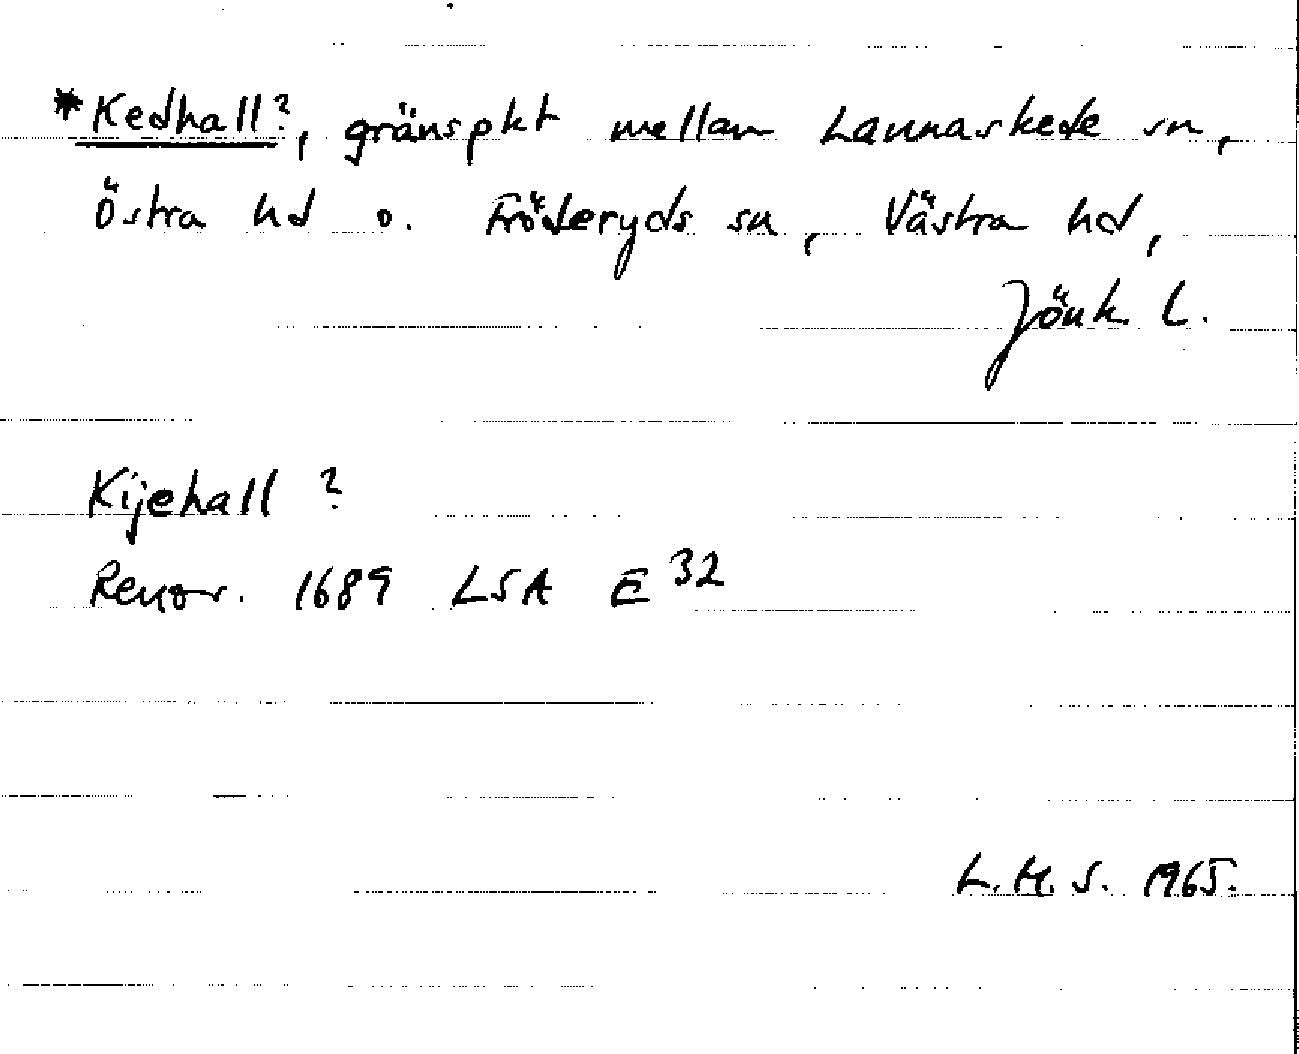 *Kedhall?, gränspkt mellan Lannaskede sn,
Östra hd o. Fröderyds sn, Västra hd,
Jönk. L.
Kijehall ?
Renov. 1689 LSA E 32
L.H.S. 1965.